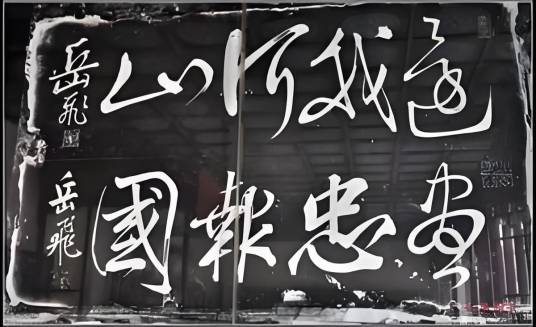 還我河山
岳飛
盡忠報國
岳飛